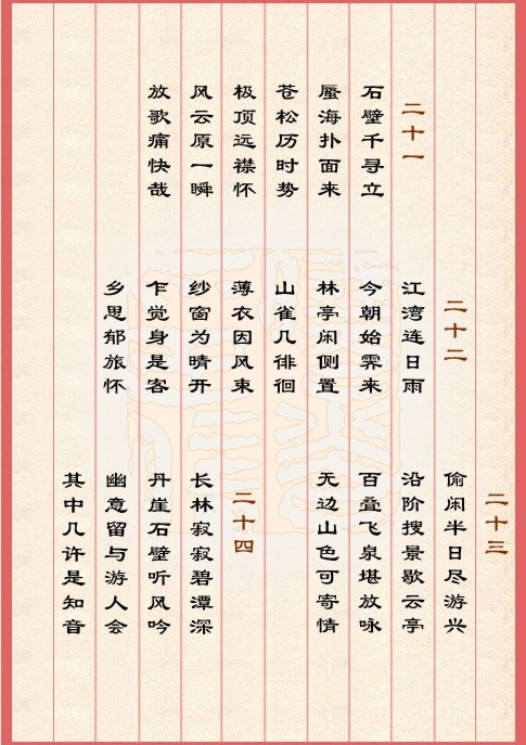 二十一
石壁千寻立
蜃海扑面来
苍松历时势
极顶远襟怀
风云原一瞬
放歌痛快哉
二十二
江湾连日雨
今朝始霁来
林亭闲侧置
山雀几徘徊
薄衣因风束
纱窗为晴开
乍觉身是客
乡思郁旅怀
二十三
偷闲半日尽游兴
沿阶搜景歇云亭
百叠飞泉堪放咏
无边山色可寄情
二十四
长林寂寂碧潭深
丹崖石壁听风吟
幽意留与游人会
其中几许是知音